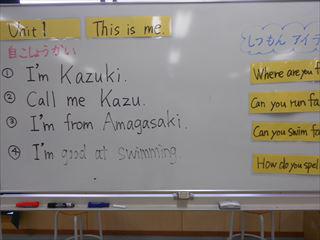 Unit 1
This is me.
自こしょうかい
① I'm Kazuki.
② Call me Kazu.
③ I'm from Amagasaki.
④ I'm good at swimming.
しつもん アイデ
Where are you f
Can you run fa
Can you swim fa
How do you spel